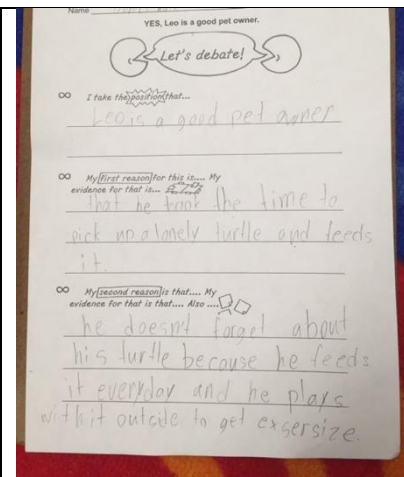 Name
YES, Leo is a good pet owner.
Let's debate!
∞ I take the position that...
Leo is a good pet owner
∞ My first reason for this is.... My
evidence for that is...
that he took the time to
pick up a lonely turtle and feeds
it.
∞ My second reason is that.... My
evidence for that is that.... Also ....
he doesnt forget about
his turtle because he feeds
it everyday and he plays
with it outside to get exsersize.